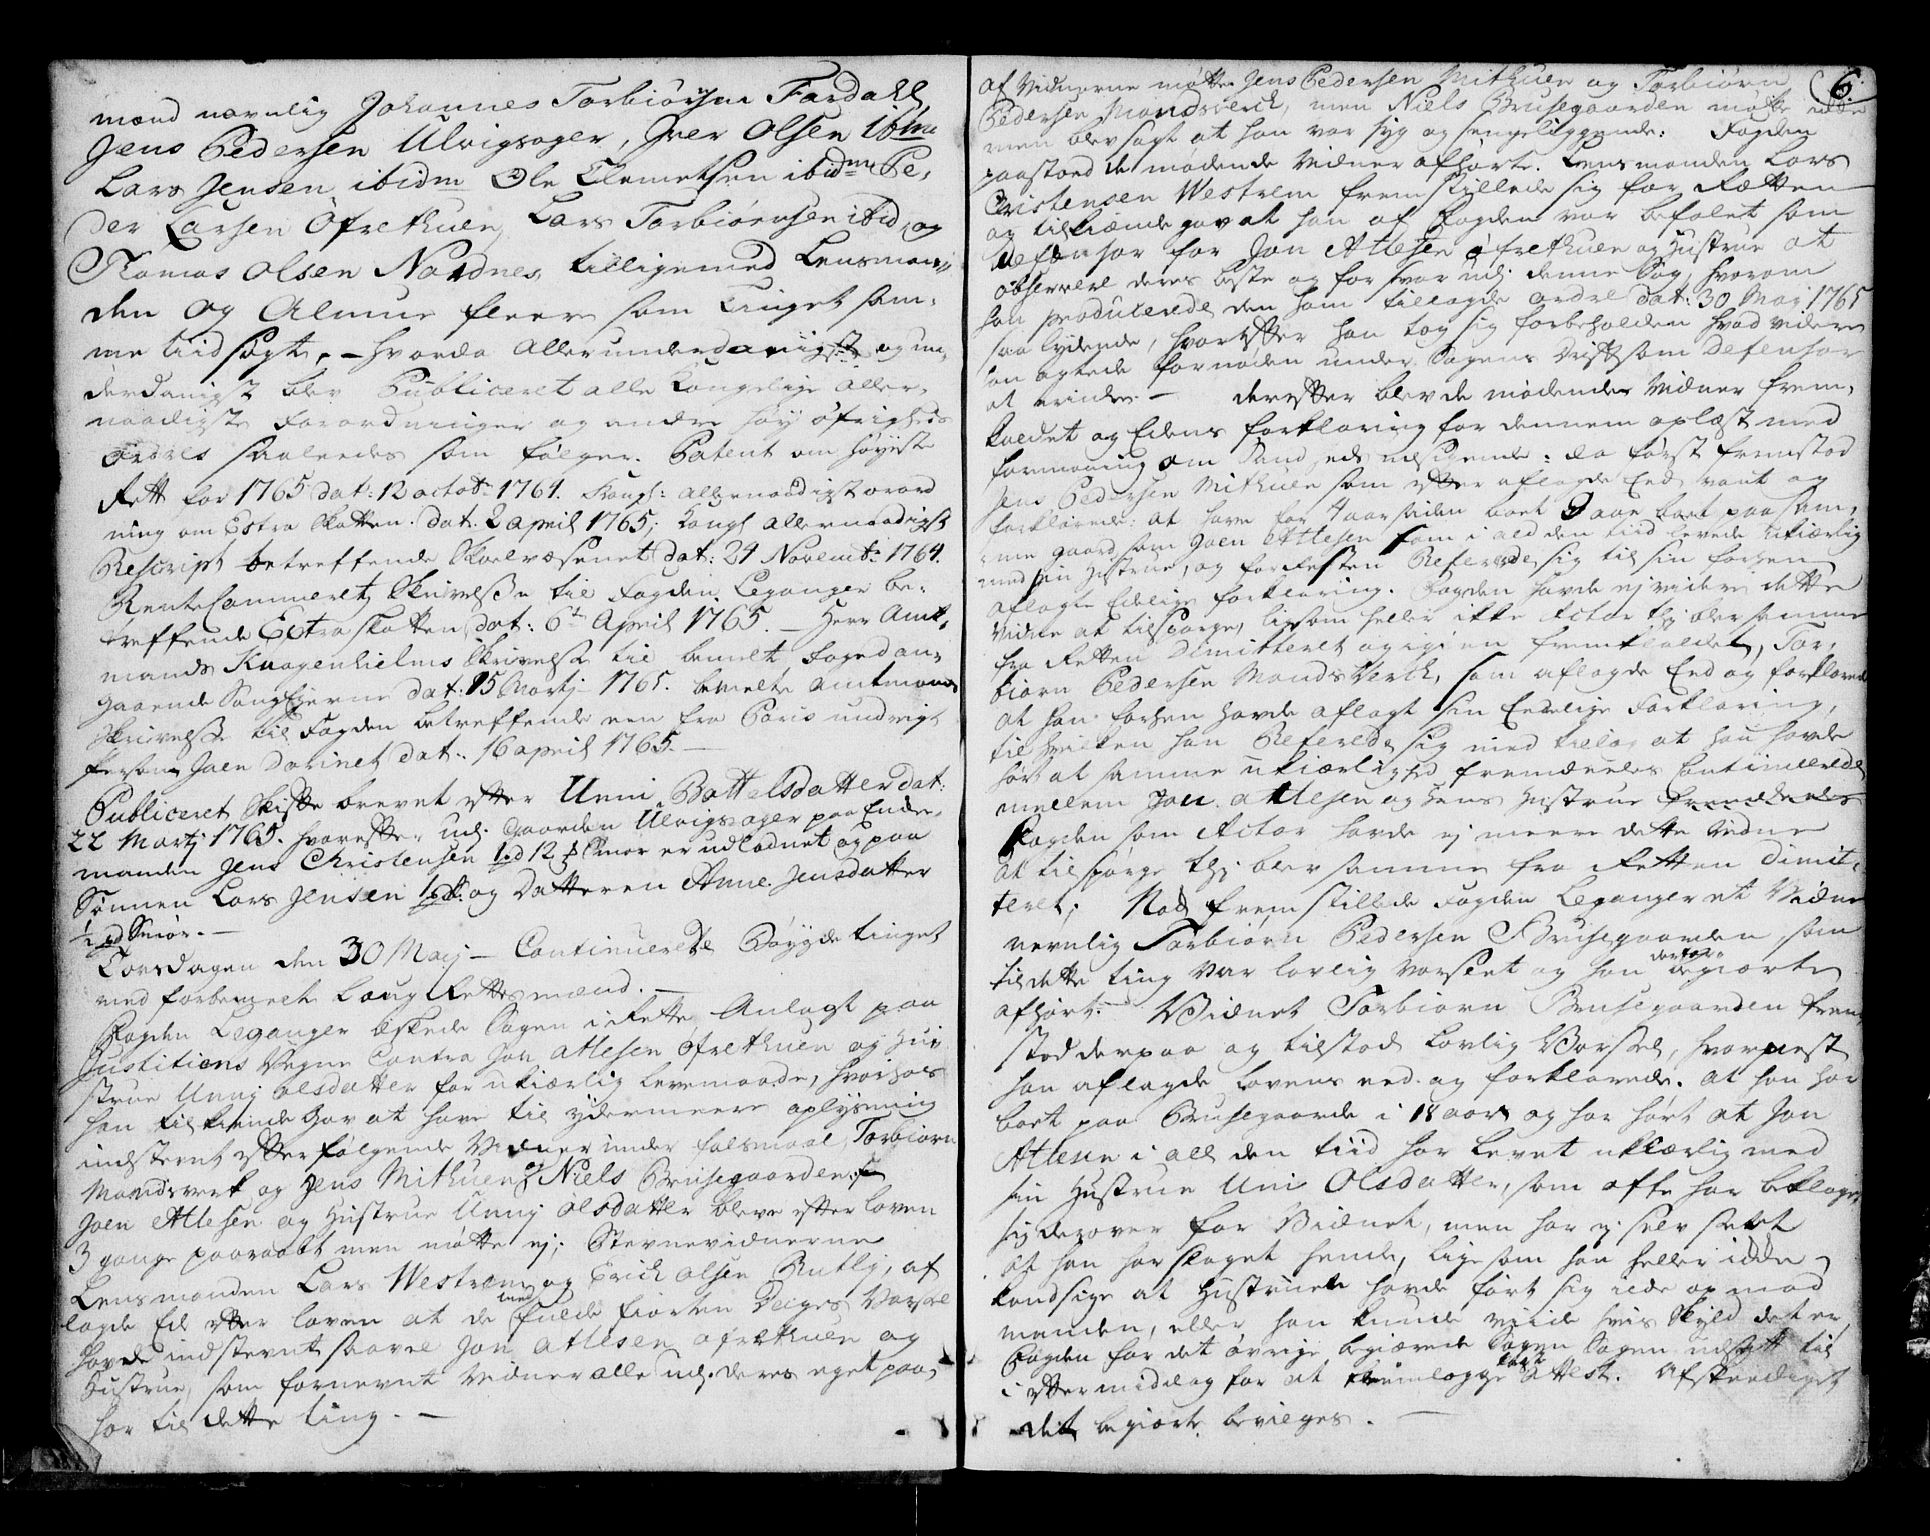 mænd navnlig Johannes Torbiørsen Fardahl,
Jens Pedersen Ulvigsager, Iver Olsen ibm
Lars Jensen ibidm Ole Clemetsen ibidm Pe,
der Larsen Øfrethuen, Lars Torbiørnsen ibid, og
Thomas Olsen Nordnes, tilligemed Lensman,,
den og Almue fleere som Tinget sam,
me tiid søgte, - hvorda allerunderdanigst og un,
derdanigst blev Publiceret alle Kongelige aller,
naadigste Forordninger og andre høy Øfrigheds
Ordres saaledes som følger. Patent om høyeste
Rett for 1765 dat: 12 octobr 1764. Kongl: allernaadigst Forord
ning om Extra Skatten. dat: 2 april 1765; Kongl allernaadigst
Rescript betreffende Skoelvæsenet dat: 24 Novembr 1764.
RenteCammeret Skrivelse til Fogden Leganger be,
treffende Extra skatten, dat: 6te April 1765. - Herr Amt,
mands Knagenhielms Skrivelse til bemelte Foged an,
gaaende dat: 15 Martj 1765. bemelte Amtmands
Skrivelse til Fogden betreffende een fra Paris undvigt
Person Joen Dorinet dat: 16 april 1765. -
Publiceret Skifte brevet efter Unni Bottelsdatter dat:
22 Martj 1765. hvorefter udj gaarden Ulvigsager paa Enke,
manden Jens Christensen 1 pd 12 Smør er udlodnet og paa
Sønnen Lars Jensen og Datteren Anne Jensdatter
1/2 pd Smør. -
Torsdagen den 30 Maij - Continuerede Bøygde tinget
med forbemelte Laug Rettesmænd. -
Fogden Leganger æskede Sagen i Rette Anlagt paa
Justitiens Vegne Contra Jon Atlesen Øfrethuen og Hu,
strue Unnj Olsdatter for ukierlig Levemaade, hvorhos
han tilkiende gav at have til ydermeere oplysning
indstevnt efterfølgende Vidner under falsmaal, Torbiørn
Mandsverk og Jens Mithuen og Niels Brusegaarden.
Joen Atlesen og Hustrue Unnj Olsdatter bleve efter loven
3 gange paaraabt men møtte ej; Stevnevidnerne
Lensmanden Lars Westrem og Erich Olsen Rutlj, af
lagde Ed efter loven at de med fulde fiorten Dages Varsel
havde indstevnt saavel Jon Atlesen Øfrethuen og
Hustrue, som fornevnte Vidner alle udj deres eget paa,
hør til dette ting. -
6.
af Vidnerne møtte Jens Pedersen Mithuen og Torbiørn
Pedersen Mandsverck, men Niels Brusegaarden møtte ikke
men blev sagt at han var syg og sengeliggende: Fogden
paastod de mødende Vidner afhørte. Lensmanden Lars
Christensen Westrem fremstillede sig for Retten
og tilkiende gav at han af Fogden var befalet som
defensor for Jon Atlesen Øfrethuen og Hustrue at
observere deres beste og forsvar udj denne Sag, hvorom
han producerede den ham tillagde ordre dat: 30 Maj 1765
saa lydende, hvorefter han tog sig forbeholden hvad videre
han agtede fornøden under Sagens Drift som defensor
at erindre. - derefter blev de mødende Vidner frem,
kaldet og Edens forklaring for dennem oplæst med
formaning om Sandhed udsigende: da først fremstod
Jens Pedersen Mithuen som efter aflagde Eed vant og
forklarede: at have for 4 aar siden boet 9 aar paa sam,
me gaard som Joen Atlesen som i ald den tiid levede ukierlig
med sin Hustrue, og forresten Refererede sig til sin forhen
aflagte Edelige forklaring. Fogden havde ej videre dette
Vidne at tilspørge, ligesom heller ikke Actor thj blev samme
fra Retten Dimitteret og igien fremkaldet, Tor,
biørn Pedersen Mandsverck, som aflagde Eed og forklarede
at han forhen havde aflagt sin Eedelige Forklaring,
til hvilken han Refererede sig med tillæg at han havde
hørt at samme ukierlighed fremdeeles Continuerede
mellem Joen Atlesen og hans Hustrue
Fogden som Actor havde ej meere dette Vidne
at tilspørge thj blev samme fra Retten Dimit,
teret; Nok fremstillede Fogden Leganger et Vidne
nevnlig Torbiørn Pedersen Brusegaarden som
til dette ting var lovlig varslet og han derfor begiærte
afhørt. - Vidnet Torbiørn Brusegaarden frem
stod derpaa og tilstod Lovlig Varsel, hvornest
han aflagde Lovens eed og forklarede. at han har
boet paa Brusegaarde i 18 aar og har hørt at Jon
Atlesen i all den tiid har levet ukierlig med
sin Hustrue Uni Olsdatter, som ofte har beklaget
sig derover for Vidnet, men har ej selv seet
at han har slaget hende, lige som han heller ikke
kand sige at Hustruen havde ført sig ilde op mod
manden, eller han kunde viide hvis Skyld det er,
Fogden for det øvrige begierede Sagen udsatt til
i eftermiddag for at fremlægge Attest. Afskeediget
det begiærte bevilges. -